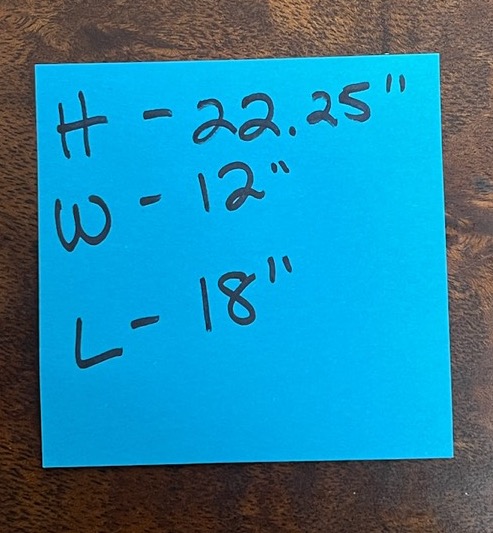 H - 22.25"
W - 12"
L - 18"